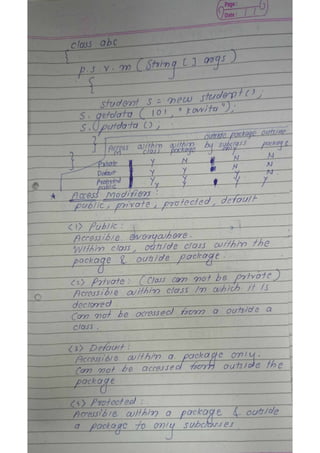 Page:
Date: / /
class abc
{
p.s v.m (String [] args)
{
student s = new student();
s.getdata (101, "kavita");
s.putdata();
}
}
Access within within outside package outside
class package by subclass only package
Private Y N N N
Default Y Y N N
Protected Y Y Y N
public Y Y Y Y
* Access Modifiers:
public, private, protected, default
(1) Public:
Accessible everywhere.
Within class, outside class within the
package & outside package.
(2) Private: (Class can not be private)
Accessible within class in which it is
declared
Can not be accessed from a outside a
class.
(3) Default:
Accessible within a package only.
Can not be accessed from outside the
package
(4) Protected:
Accessible within a package & outside
a package to only subclasses.